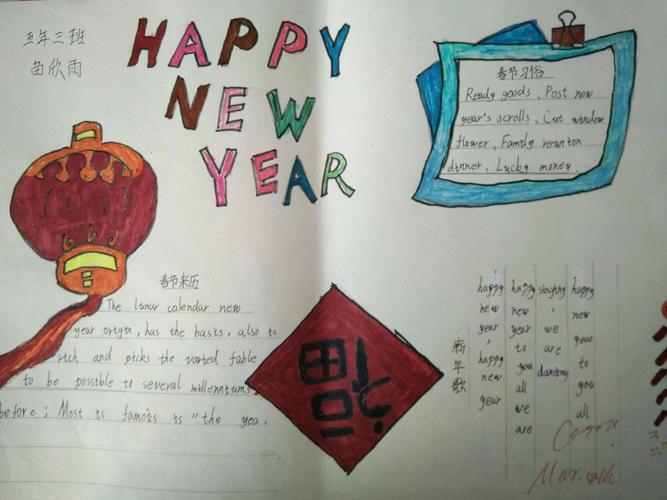 五年三班
苗欣雨
HAPPY
NEW
YEAR
春节习俗
Ready goods、Post new
year's scrolls、Cut window
flower、Family reunion
dinner、Lucky money.
春节来历
The lunar calendar new
year origin, has the basis, also is
rich and picks the varied fable
to be possible to several millenniums
before; Most is famous is "the yea.
福
新年歌
happy new year, happy new year
happy new year to you all we are
singing, we are dancing
happy new year to you all
Mar.